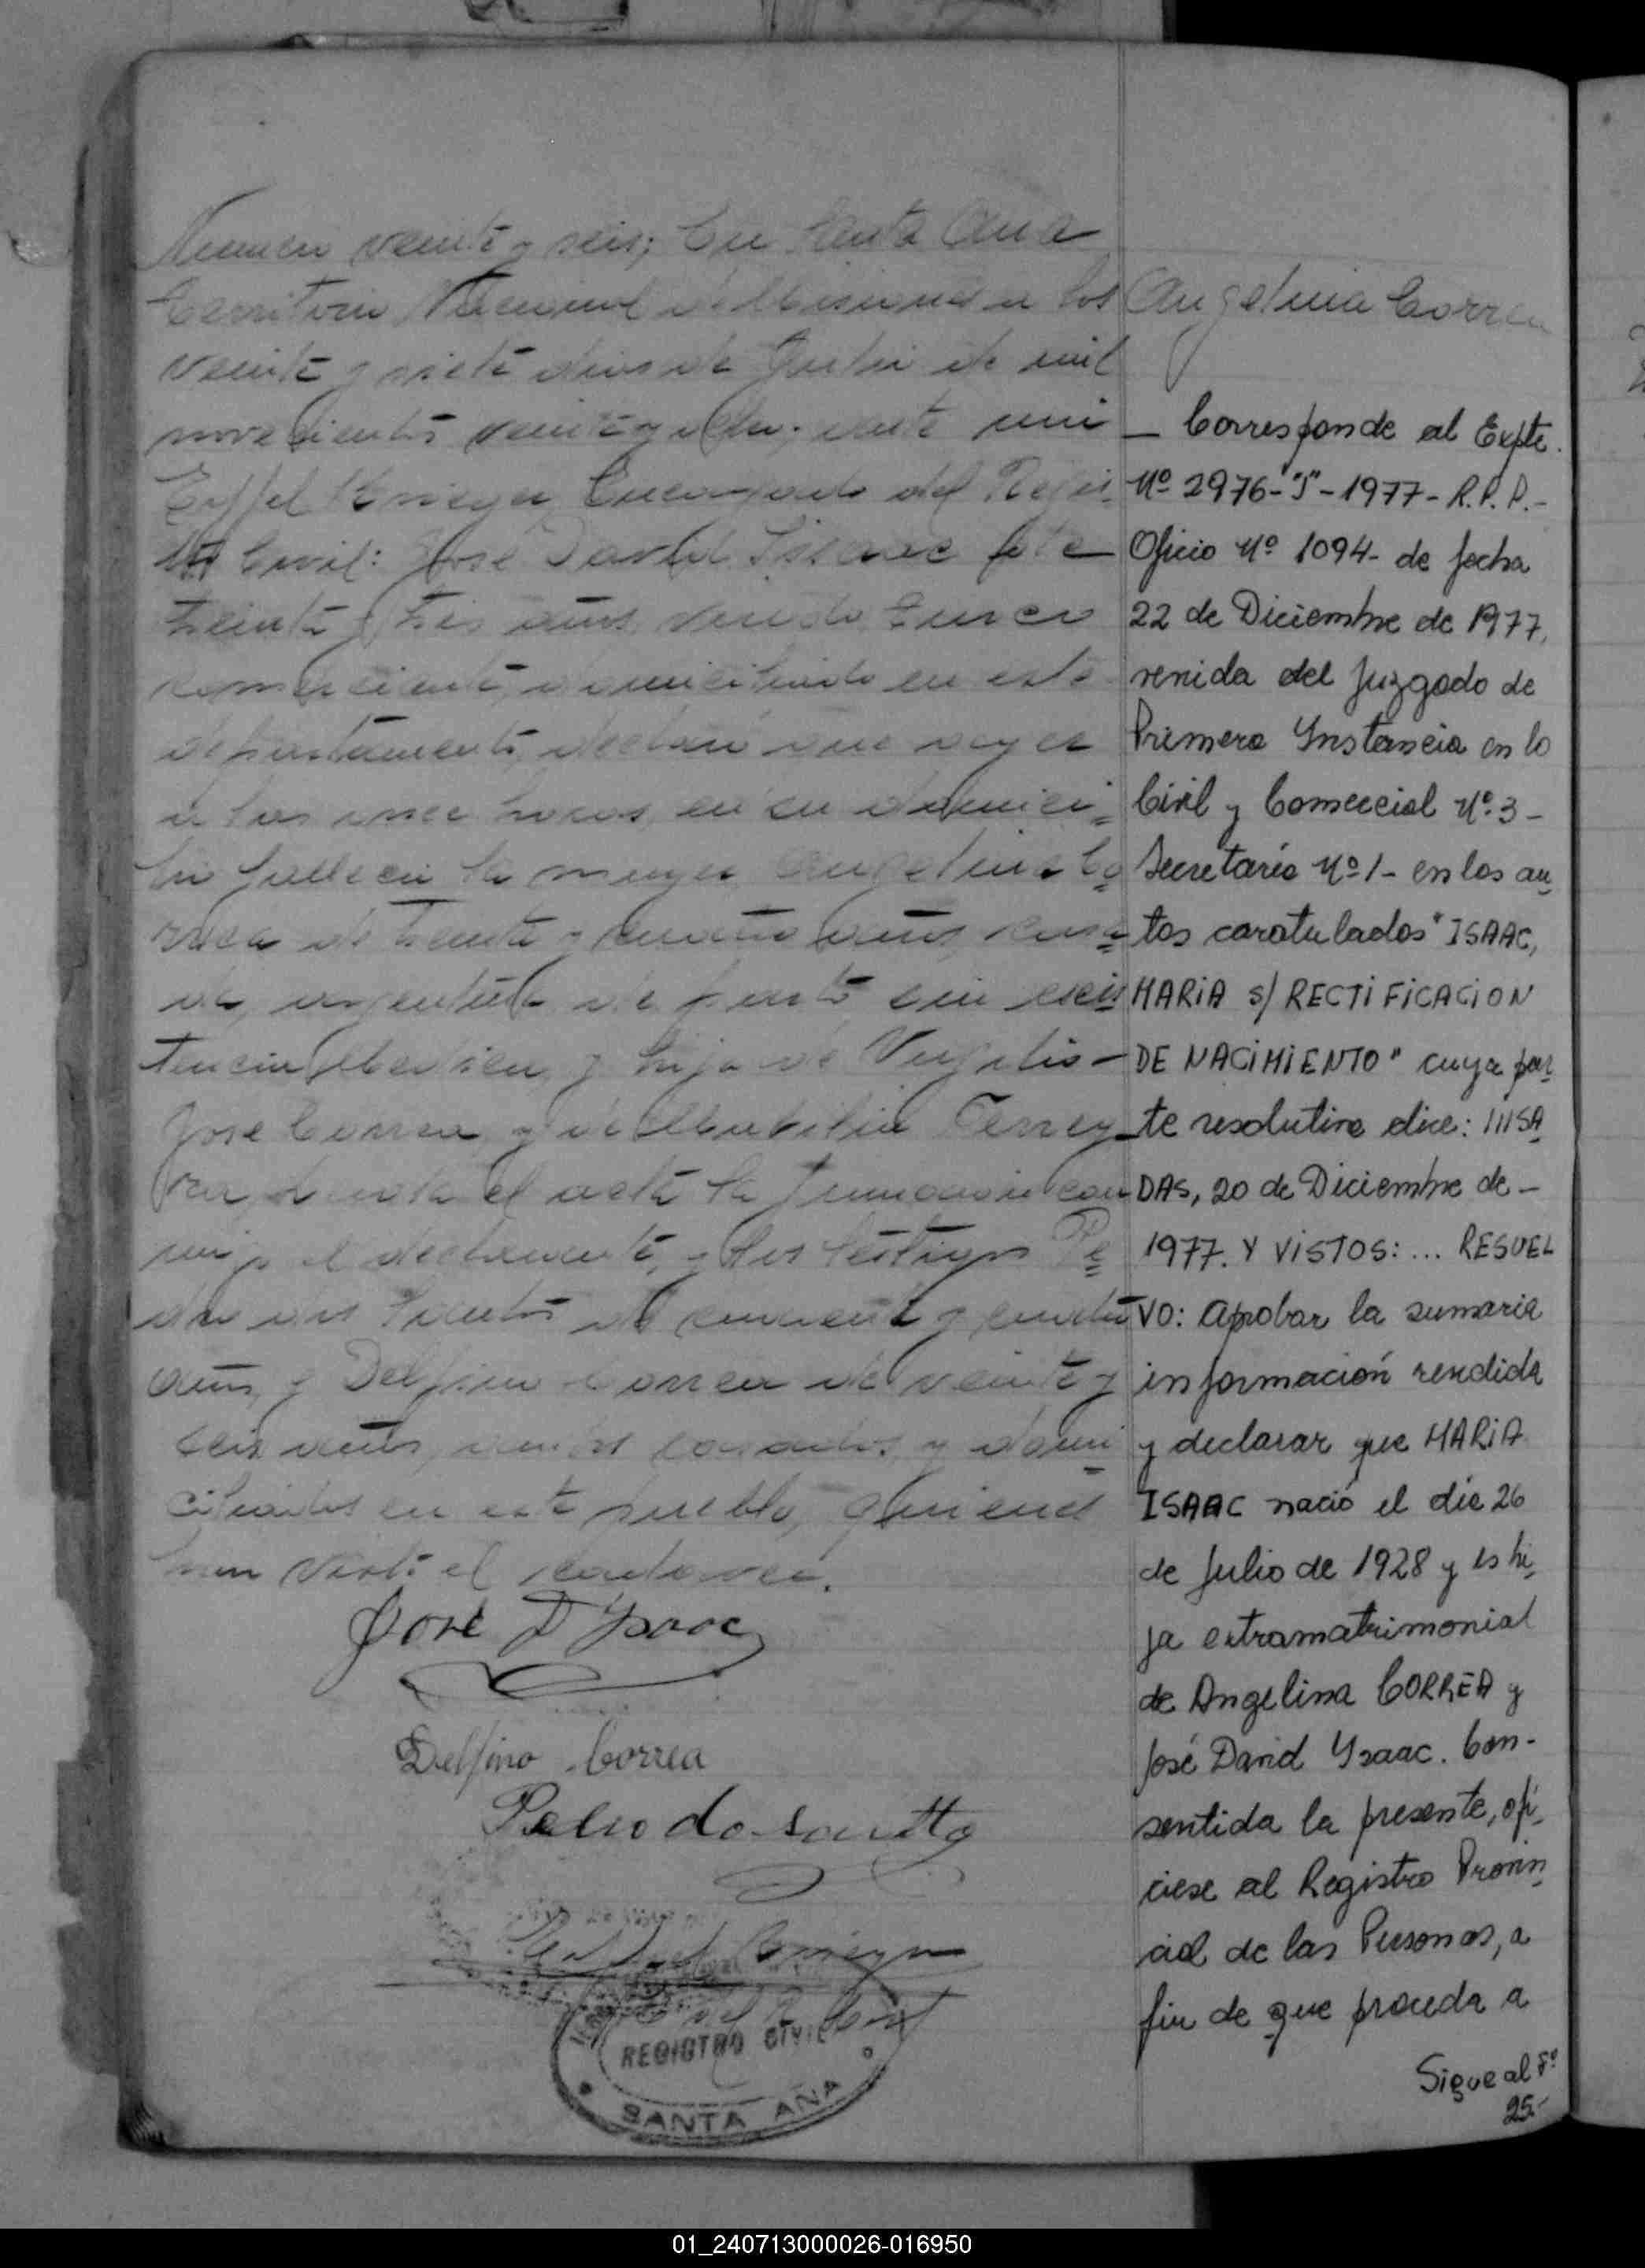 Numero veinte y seis; En Santa Ana
Territorio Nacional de Misiones a los
veinte y siete dias de Julio de mil
novecientos veinte y ocho. ante mi
Krieger Encargado del Regis-
tro Civil: José David Isaac de
treinta y tres años, viudo
comerciante, domiciliado en este
departamento, declaró que ayer
a las once horas, en su domici=
lio falleció la mujer Angelina Co
rrea de treinta y cuatro años, casa
da, argentina de parto sin asis
tencia Medica, y hija de Virgilio
José Correa, y de Ferrey
ra, el acta la firmaron con
migo el declarante, y los testigos Pe
dro dos Santos de cuarenta y cuatro
años, y Delfino Correa de veinte y
seis años, ambos casados, y domi
ciliados en este pueblo, quienes
han visto el cadaver.
José D Ysaac
Delfino Correa
Pedro do Santto
Krieger
REGISTRO CIVIL
SANTA ANA
Angelina Correa
_ Corresponde al Expte.
Nº 2976-"J"-1977- R.P.P.-
Oficio Nº 1094- de fecha
22 de Diciembre de 1977,
venida del Juzgado de
Primera Instancia en lo
Civil y Comercial Nº 3-
Secretaría Nº 1- en los au
tos caratulados "ISAAC,
MARIA s/ RECTIFICACION
DE NACIMIENTO" cuya par
te resolutiva dice:
DAS, 20 de Diciembre de -
1977. Y VISTOS: ... RESUEL
VO: Aprobar la sumaria
información rendida
y declarar que MARIA
ISAAC nació el día 26
de Julio de 1928 y es hi
ja extramatrimonial
de Angelina CORREA y
José David Ysaac. Con-
sentida la presente, ofí
ciese al Registro Provin
cial de las Personas, a
fin de que proceda a
Sigue al Fº
25.-
01_240713000026-016950